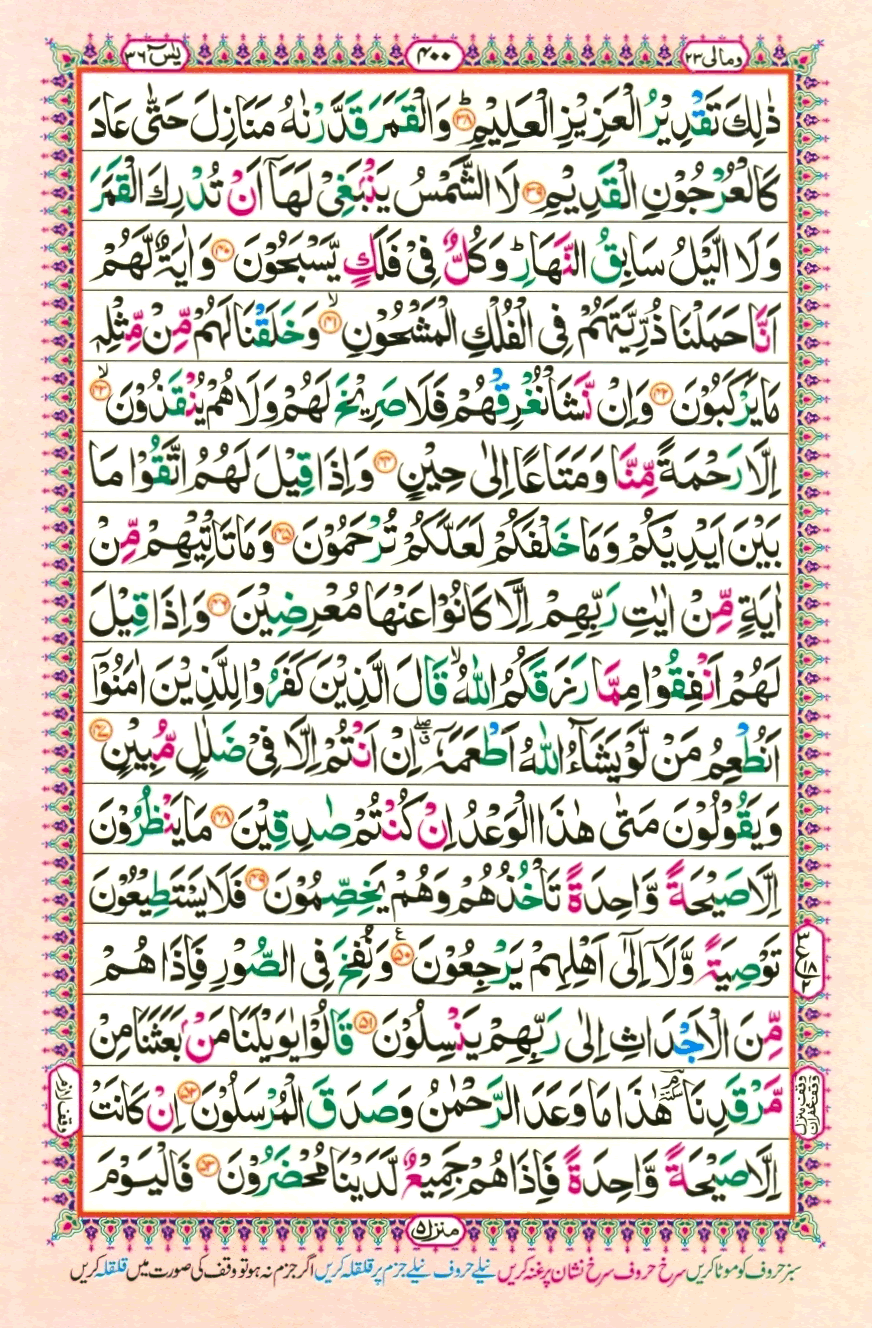 ومالی ۲۳
۴۰۰
یٰسٓ ۳۶
ذٰلِكَ تَقْدِيْرُ الْعَزِيْزِ الْعَلِيْمِ ؕ‏﴿۳۸﴾ وَالْقَمَرَ قَدَّرْنٰهُ مَنَازِلَ حَتّٰى عَادَ
كَالْعُرْجُوْنِ الْقَدِيْمِ ﴿۳۹﴾ لَا الشَّمْسُ يَنْۢبَغِىْ لَهَاۤ اَنْ تُدْرِكَ الْقَمَرَ
وَلَا الَّيْلُ سَابِقُ النَّهَارِ ؕ وَكُلٌّ فِىْ فَلَكٍ يَّسْبَحُوْنَ ﴿۴۰﴾ وَاٰيَةٌ لَّهُمْ
اَنَّا حَمَلْنَا ذُرِّيَّتَهُمْ فِى الْفُلْكِ الْمَشْحُوْنِ ۙ﴿۴۱﴾ وَخَلَقْنَا لَهُمْ مِّنْ مِّثْلِهٖ
مَا يَرْكَبُوْنَ ﴿۴۲﴾ وَاِنْ نَّشَاْ نُغْرِقْهُمْ فَلَا صَرِيْخَ لَهُمْ وَلَا هُمْ يُنْقَذُوْنَ ۙ﴿۴۳﴾
اِلَّا رَحْمَةً مِّنَّا وَمَتَاعًا اِلٰى حِيْنٍ ﴿۴۴﴾ وَاِذَا قِيْلَ لَهُمُ اتَّقُوْا مَا
بَيْنَ اَيْدِيْكُمْ وَمَا خَلْفَكُمْ لَعَلَّكُمْ تُرْحَمُوْنَ ﴿۴۵﴾ وَمَا تَاْتِيْهِمْ مِّنْ
اٰيَةٍ مِّنْ اٰيٰتِ رَبِّهِمْ اِلَّا كَانُوْا عَنْهَا مُعْرِضِيْنَ ﴿۴۶﴾ وَاِذَا قِيْلَ
لَهُمْ اَنْفِقُوْا مِمَّا رَزَقَكُمُ اللّٰهُ ۙ قَالَ الَّذِيْنَ كَفَرُوْا لِلَّذِيْنَ اٰمَنُوْۤا
اَنُطْعِمُ مَنْ لَّوْ يَشَآءُ اللّٰهُ اَطْعَمَهٗۤ ۖۗ اِنْ اَنْتُمْ اِلَّا فِىْ ضَلٰلٍ مُّبِيْنٍ ﴿۴۷﴾
وَيَقُوْلُوْنَ مَتٰى هٰذَا الْوَعْدُ اِنْ كُنْتُمْ صٰدِقِيْنَ ﴿۴۸﴾ مَا يَنْظُرُوْنَ
اِلَّا صَيْحَةً وَّاحِدَةً تَاْخُذُهُمْ وَهُمْ يَخِصِّمُوْنَ ﴿۴۹﴾ فَلَا يَسْتَطِيْعُوْنَ
تَوْصِيَةً وَّلَاۤ اِلٰٓى اَهْلِهِمْ يَرْجِعُوْنَ ﴿۵۰﴾ وَنُفِخَ فِى الصُّوْرِ فَاِذَا هُمْ
مِّنَ الْاَجْدَاثِ اِلٰى رَبِّهِمْ يَنْسِلُوْنَ ﴿۵۱﴾ قَالُوْا يٰوَيْلَنَا مَنْۢ بَعَثَنَا مِنْ
مَّرْقَدِنَا ۘ سكتة هٰذَا مَا وَعَدَ الرَّحْمٰنُ وَصَدَقَ الْمُرْسَلُوْنَ ﴿۵۲﴾ اِنْ كَانَتْ
اِلَّا صَيْحَةً وَّاحِدَةً فَاِذَا هُمْ جَمِيْعٌ لَّدَيْنَا مُحْضَرُوْنَ ﴿۵۳﴾ فَالْيَوْمَ
منزل ۵
سبز حروف کو موٹا کریں سرخ حروف سرخ نشان پر غنہ کریں نیلے حروف نیلے جزم پر قلقلہ کریں اگر جزم نہ ہو تو وقف کی صورت میں قلقلہ کریں